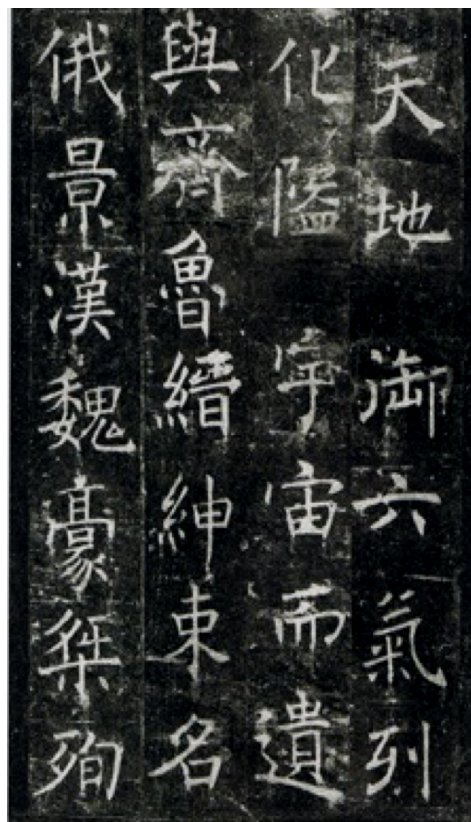 天地御六氣列
化隘宇宙而遺
與齊魯縉紳束名
俄景漢魏豪桀殉